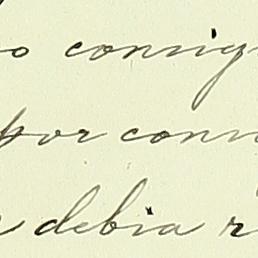 consig
por conv
debia r